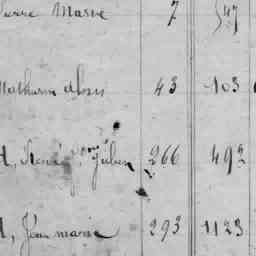 Pierre Marie 7 547
Mathurin 43 103
René Julien 266 492
Jean marie 293 1123